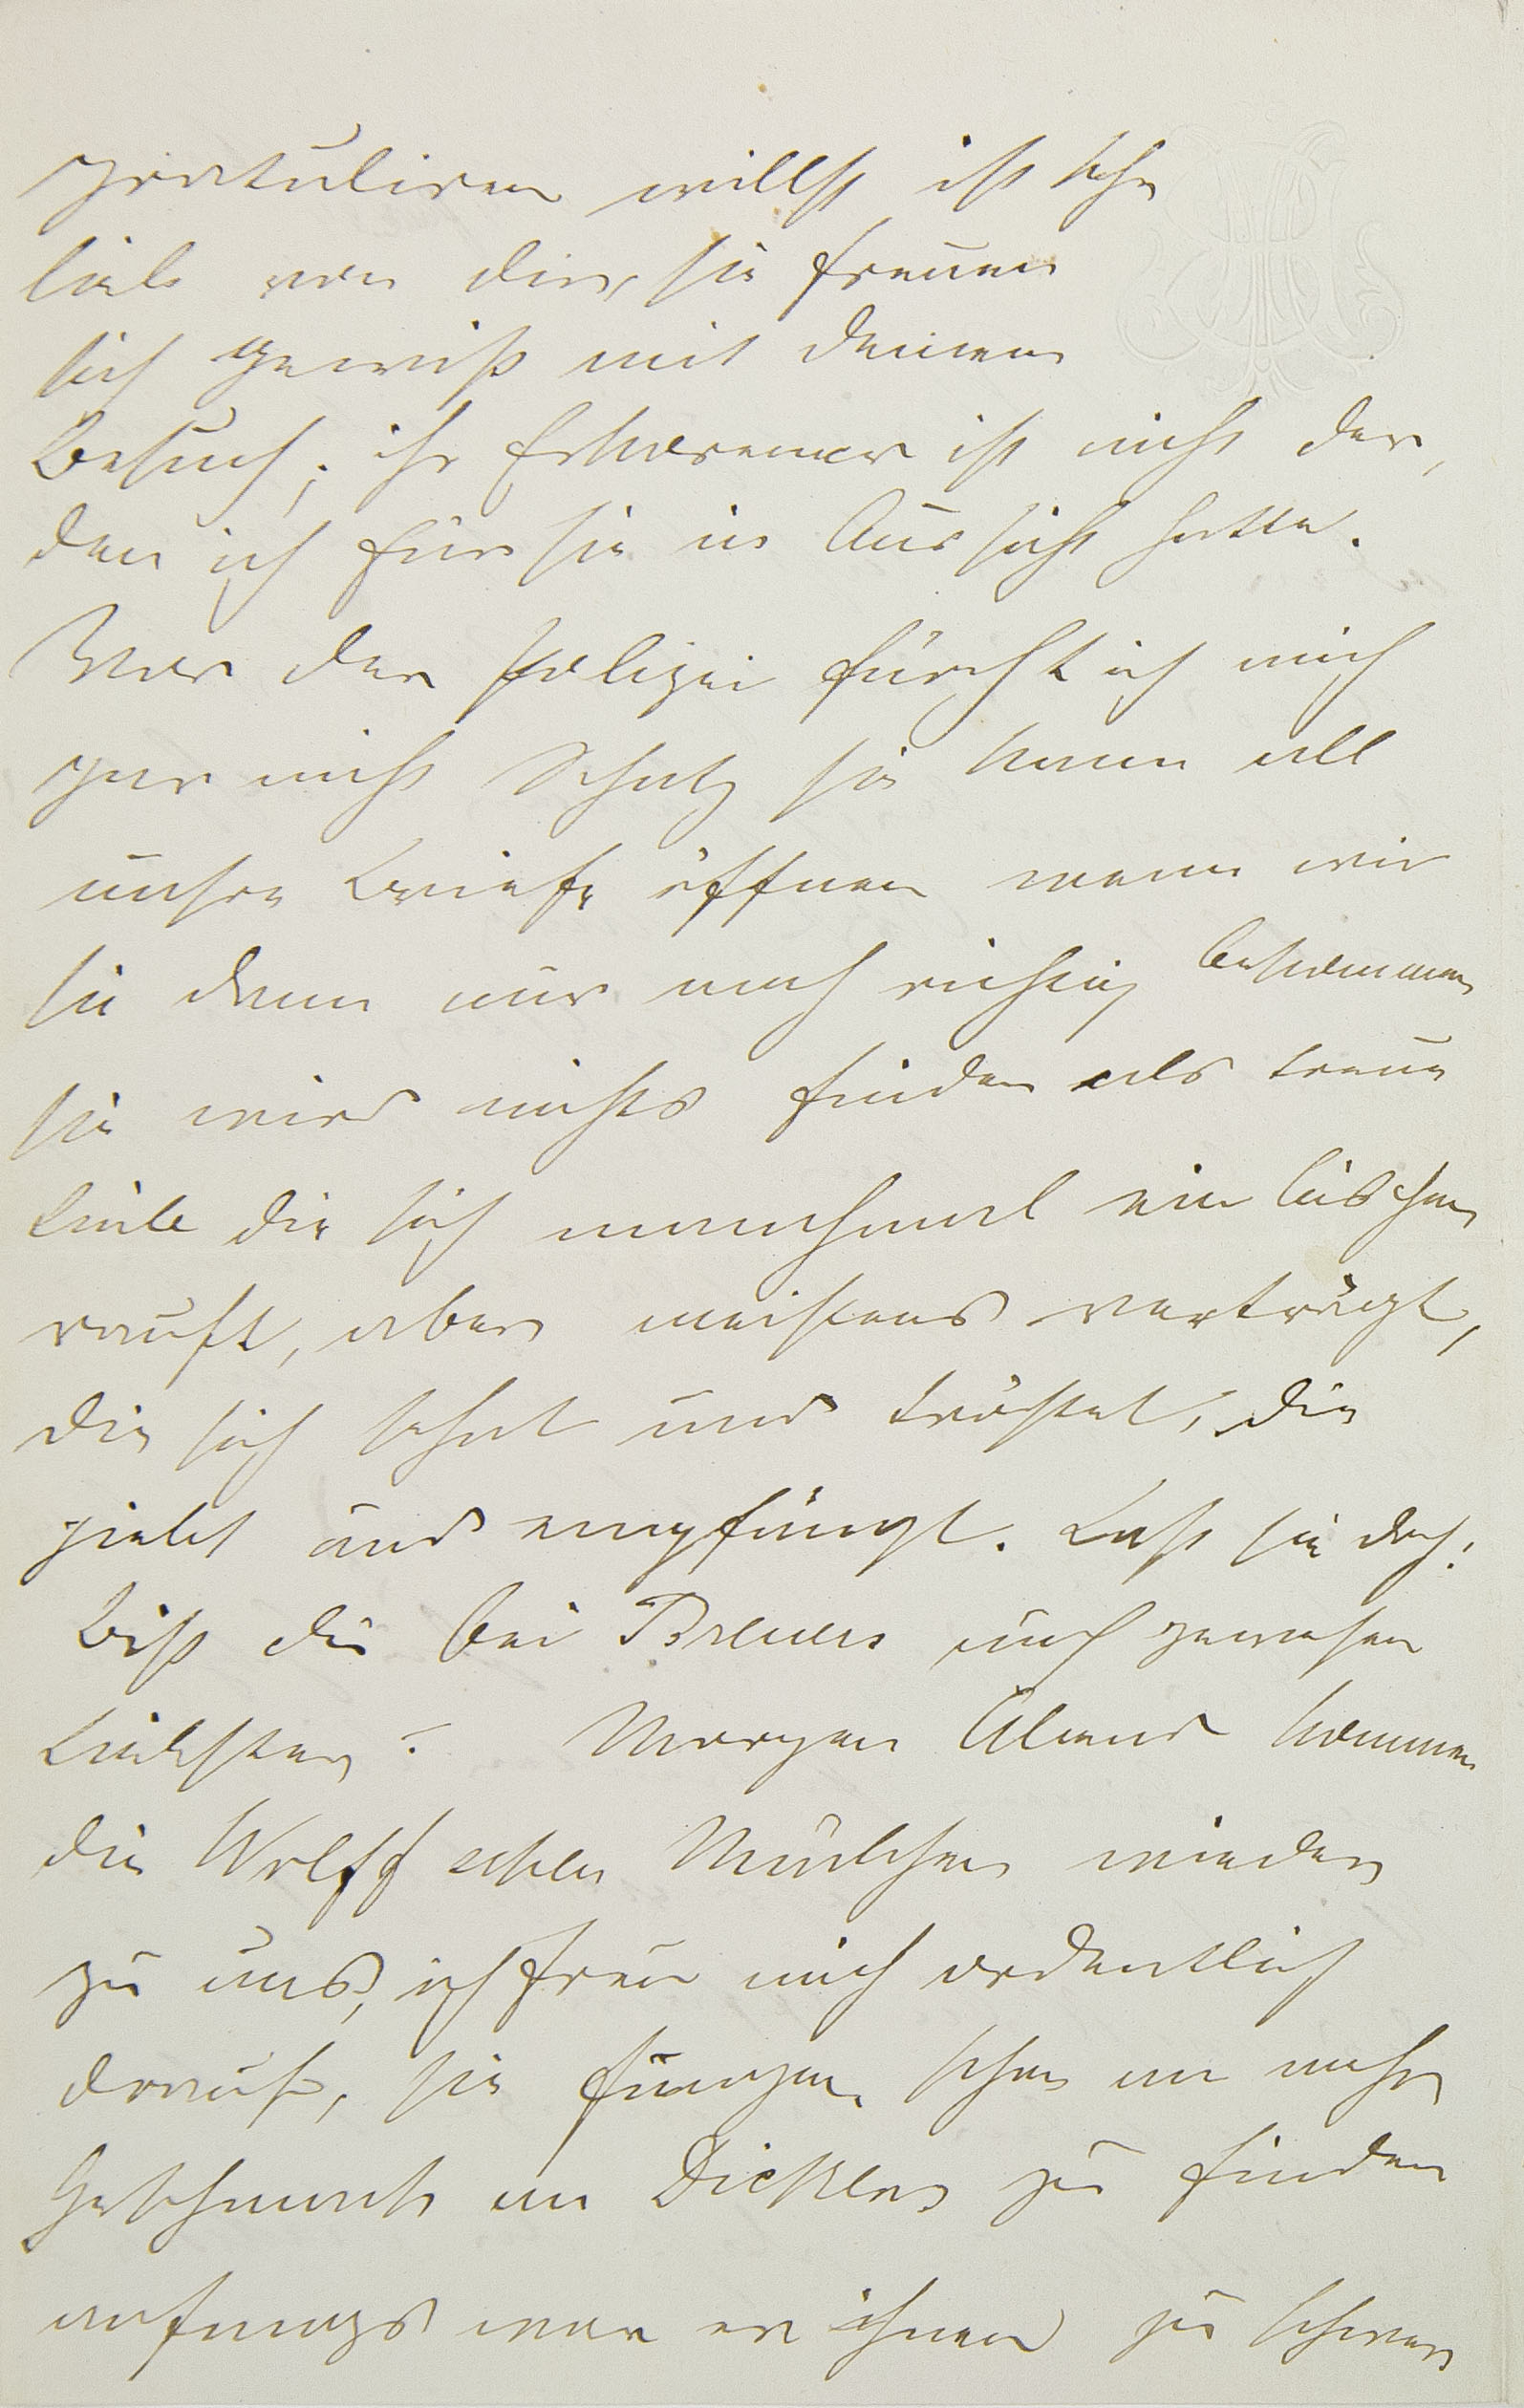 gratuliren willst ist sehr
lieb von dir, sie freuen
sich gewiß mit deinem
Besuch; ihr Erkorener ist nicht der,
den ich für sie in Aussicht hatte.
Vor der Polizei fürcht ich mich
gar nicht Schatz sie kann all
unsre Briefe öffnen wenn wir
sie dann nur noch richtig bekommen
sie wird nichts finden als treue
Liebe die sich manchmal ein bischen
rauft, aber meistens verträgt,
die sich sehnt und tröstet, die
giebt und empfängt. Laß sie doch!
Bist du bei Breuers auch gewesen
Liebster? Morgen Abend kommen
die Wolff schen Mädchen wieder
zu uns, ich freue mich ordentlich
drauf, sie fangen schon an mehr
Geschmack an Dickens zu finden
anfangs war er ihnen zu schwer